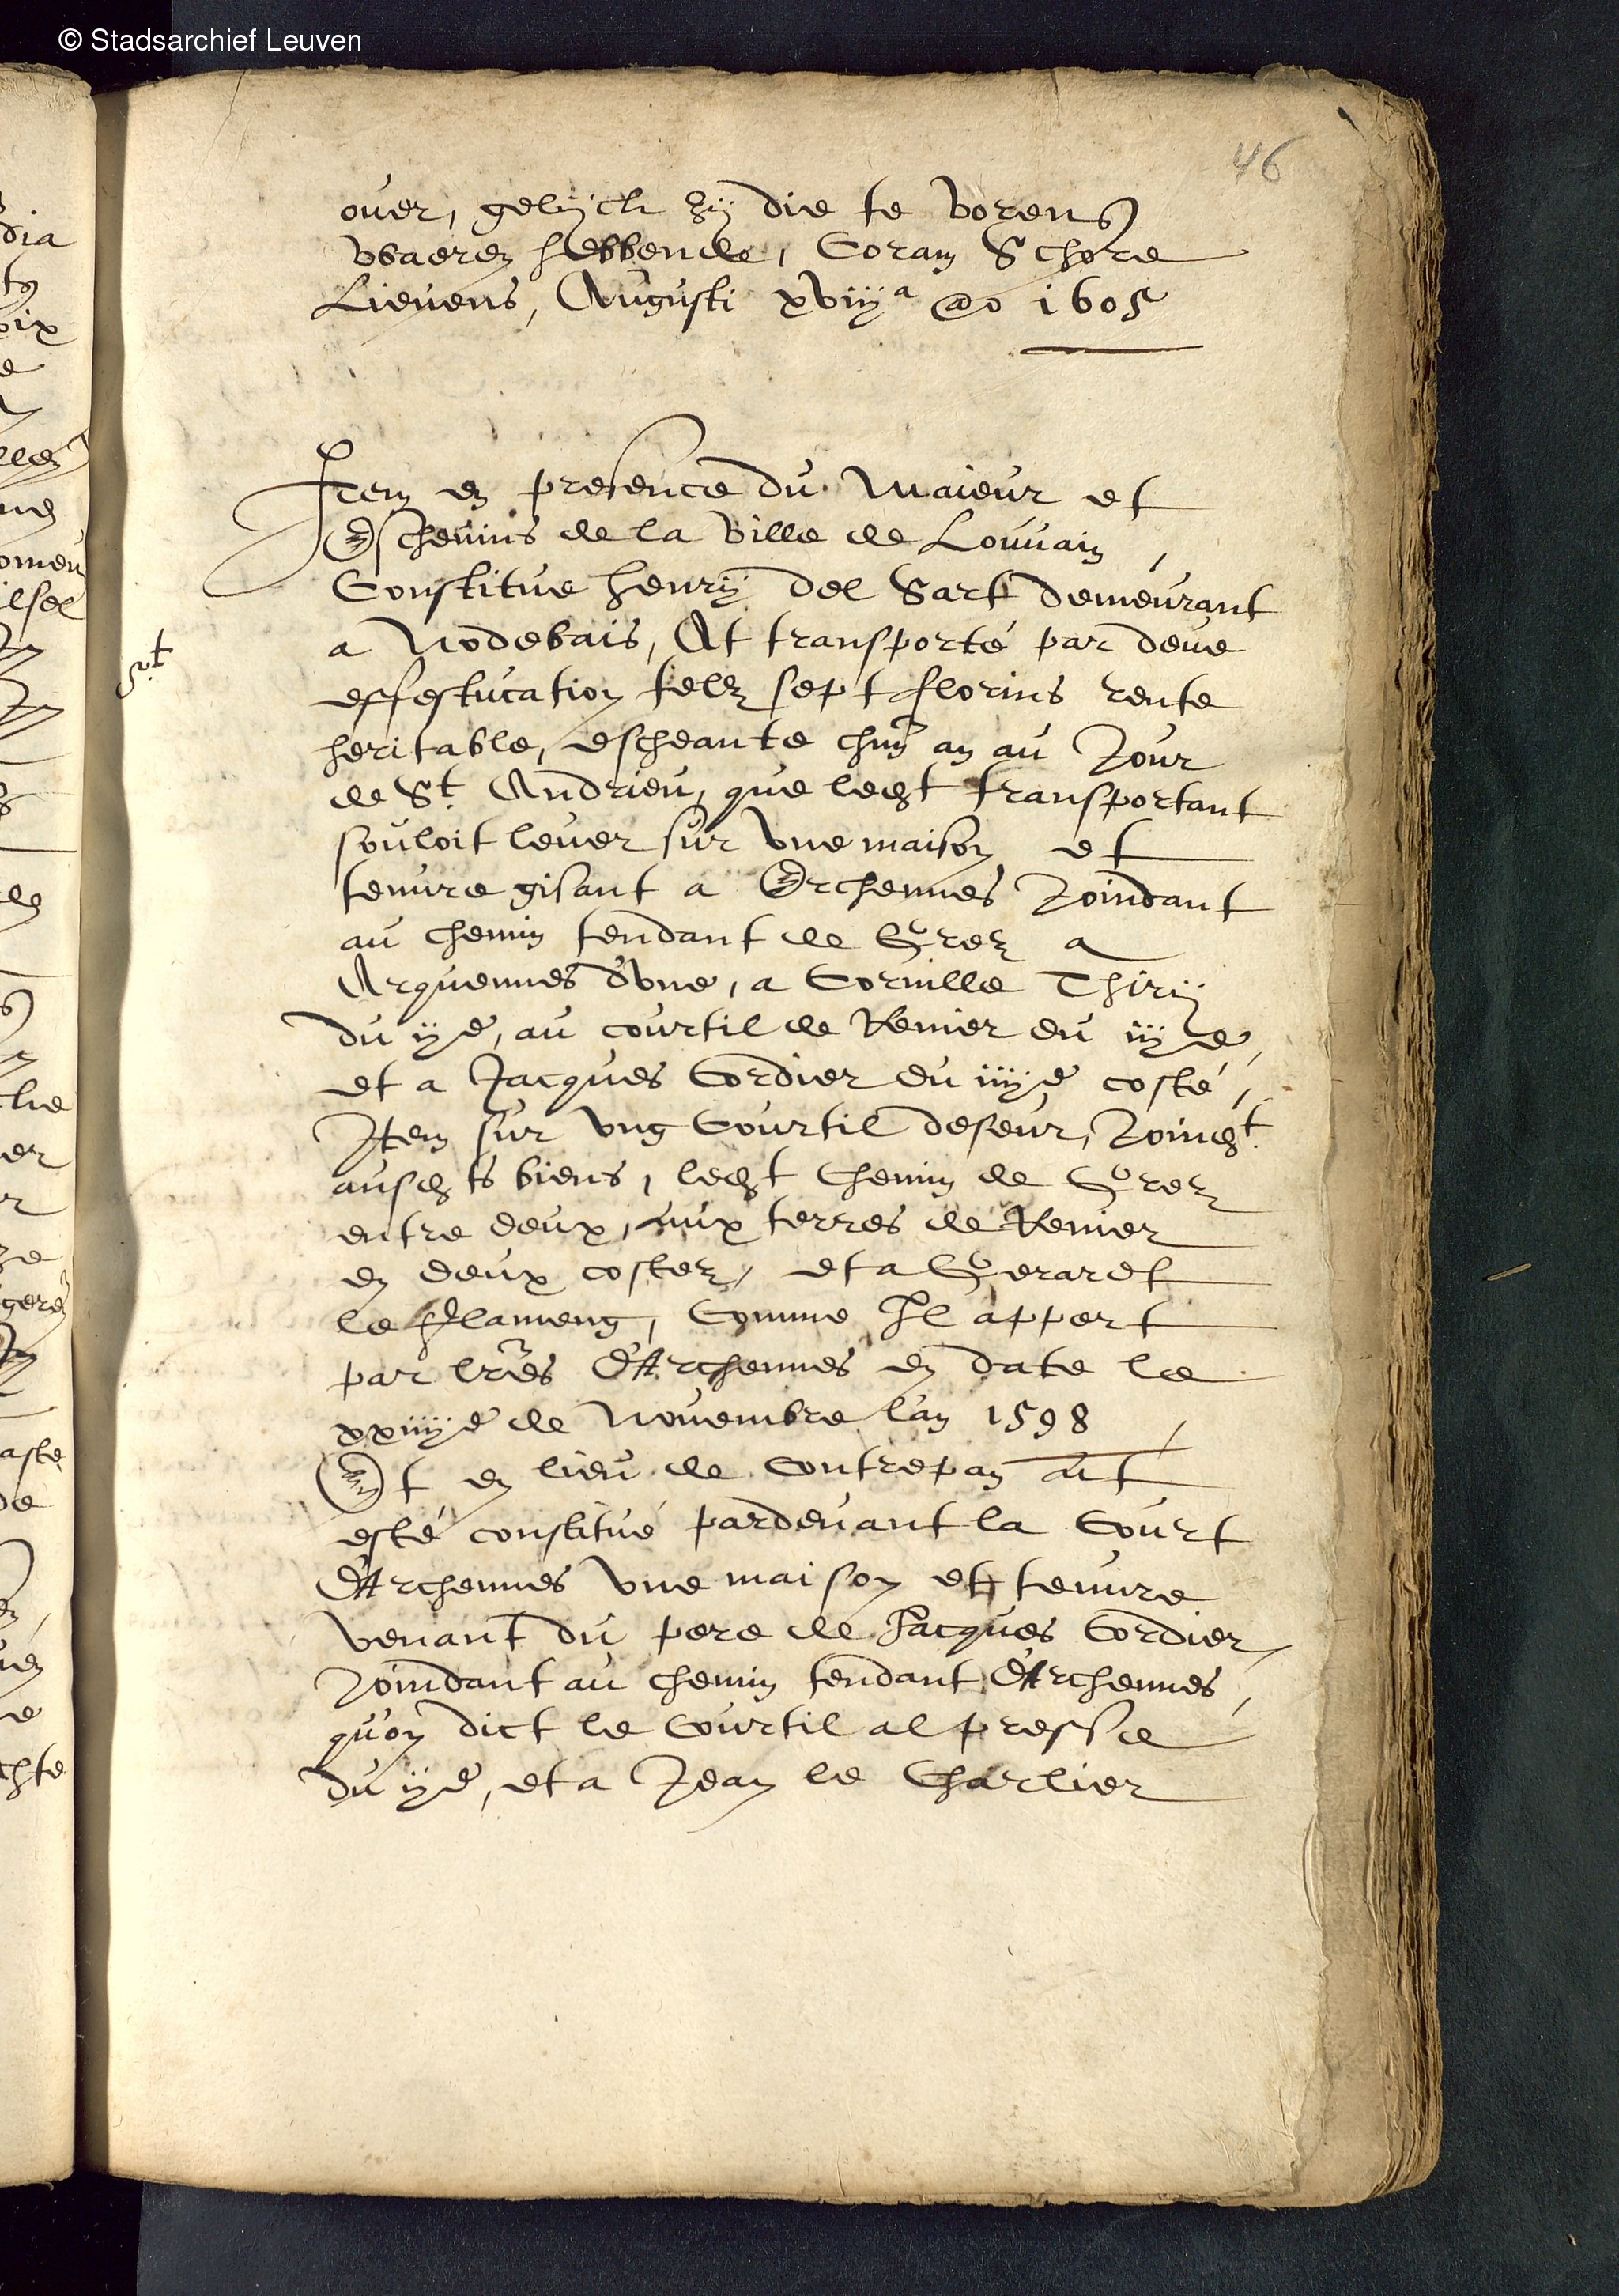 © Stadsarchief Leuven
46
ouer, gelijck hij die te vorens
vvaeren hebbende, Coram Schore
Lieuens, Augusti xviij a ao 1605
Item en presence du Maieur et
Eschevins de la ville de Louuain,
Constitue henrij del Sart demeurant
a Nodebais, At transporté par deue
effestucation telz sept florins rente
heritable, escheante chũn an au Jour
de St. Andrieu, que ledt transportant
souloit leuer sur vne maison et
tenure gisant a Erchennes Joindant
au chemin tendant de Grez a
Arquennes d'vne, a Cornille Thirij
du ije, au courtil de Renier du iije,
et a Jacques Cordier du iiije costé,
Item sur vng Courtil deseur, Joindt.
ausdts biens, ledt Chemin de Grez
entre deux, aux terres de Renier
en deux costez, et a Gerardt
le Flameng, Comme Il appert
par lr̃es d'Archennes en date le
xxiiije de Nouembre l'an 1598,
Et en lieu de Contrepan at
esté constitué pardeuant la Court
d'Archennes vne maison et tenure
venant du pere de Jacques Cordier,
Joindant au chemin tendant d'Archennes,
qu'on dict le Courtil al presse
du ije, et a Jean le Charlier